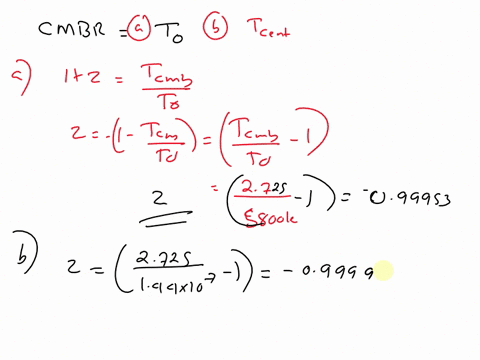 CMBR = (a) T0 (b) Tcent
a) 1+z = Tcmb/T0
z = -(1 - Tcm/T0) = (Tcmb/T0 - 1)
z = (2.725/5800k - 1) = -0.99953
b) z = (2.725/1.99x10^7 - 1) = -0.9999